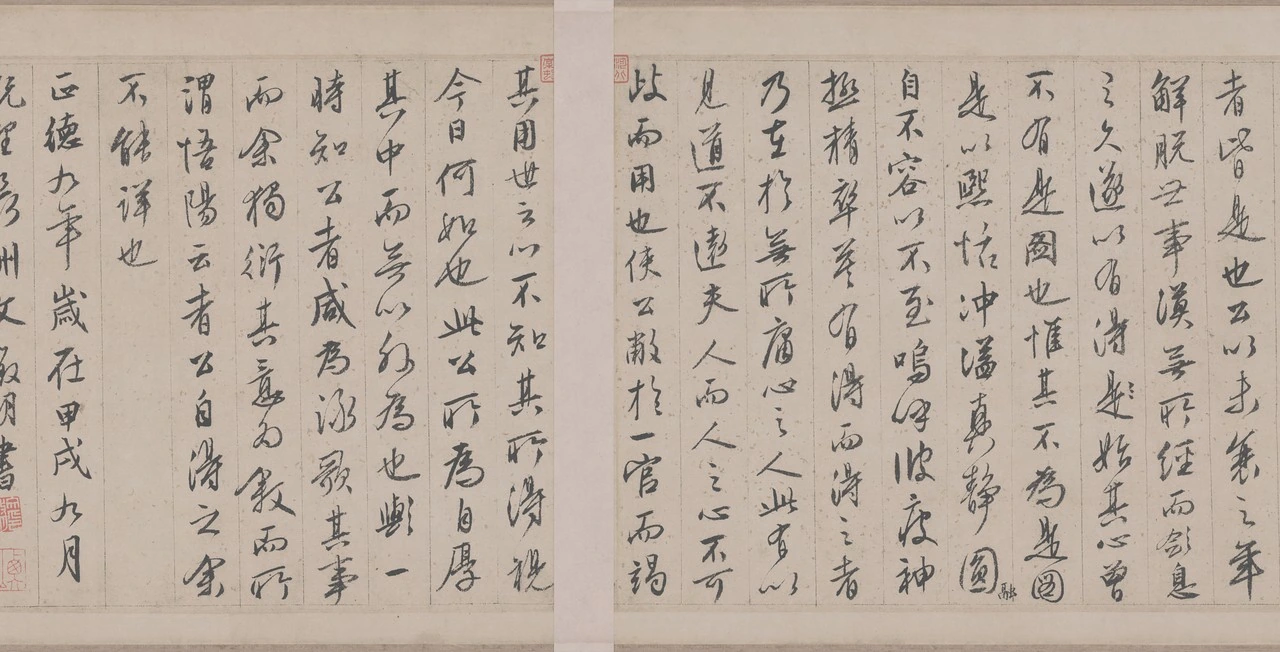 者皆是也公以未衰之年
解脫世事漠無所經而歛息
之久遂以有得是始其心曾
不有是圖也惟其不為是圖
是以熙恬沖溢真靜圓融
自不容以不至嗚呼彼疲神
極精卒莫有得而得之者
乃在於無所庸心之人此有以
見道不遠夫人而人之心不可
歧而用也使公敝於一官而竭
其用世云以不知其所得視
今日何如也此公所為自厚
其中而無以外為也歟一
時知公者咸為詠歌其事
而余獨衍其意為敘而所
謂悟陽云者公自得之余
不能詳也
正德九年歲在甲戌九月
明書